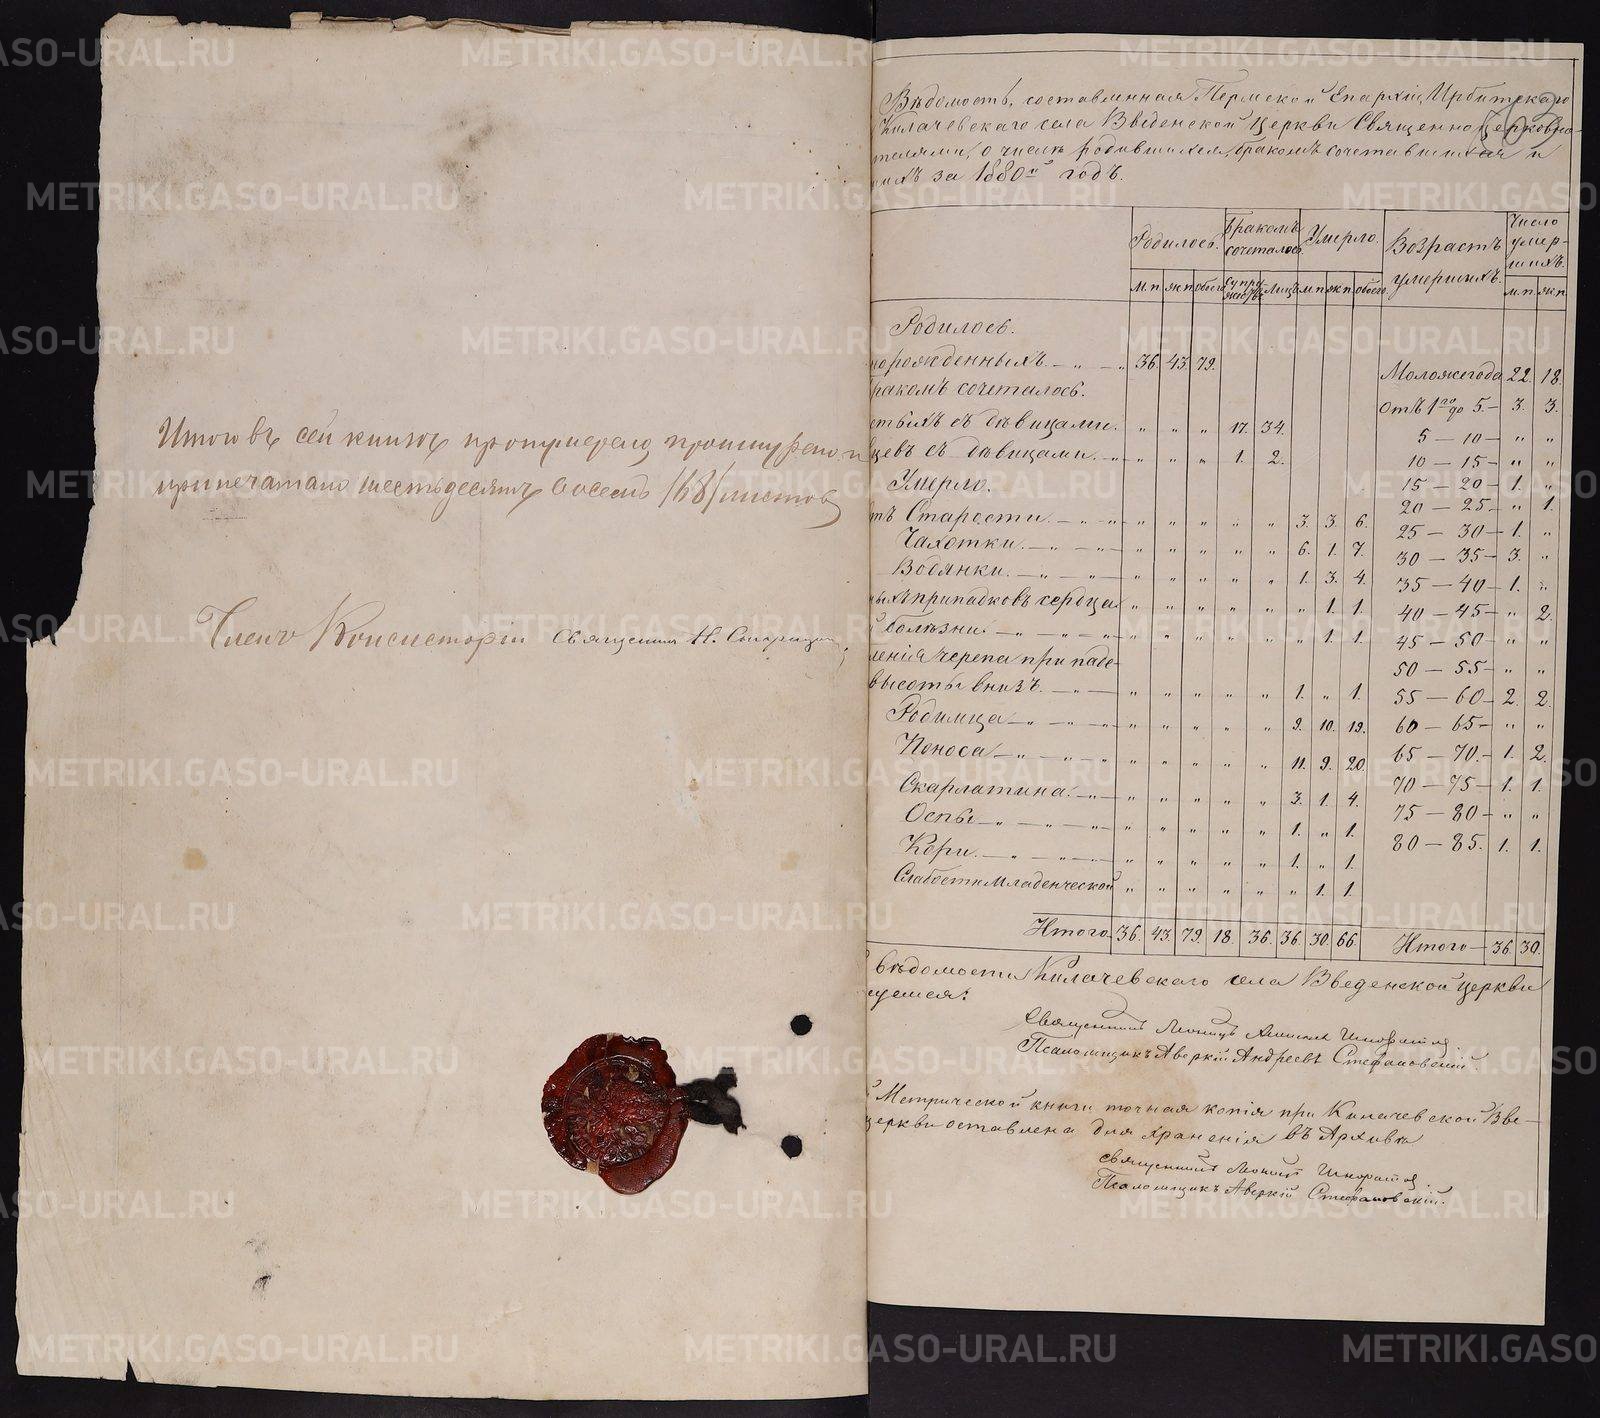 Итого въ сей книгѣ пронумеровано прошнуровано и
припечатано шестьдесятъ восемь /68/ листовъ
Членъ Консисторіи Священникъ Н.
Вѣдомость, составленная Пермской Епархіи, Ирбитскаго
Килачевскаго села Введенской Церкви Священноцерковно-
телями, о числѣ родившихся, бракомъ сочетавшихся и
ихъ за 1880й годъ.
Родилось. Бракомъ сочеталось. Умерло. Возрастъ умершихъ. Число умершихъ.
м.п. жп. обоего супружествъ Лицъ м.п. жп. обоего м.п. жп.
Родилось.
норожденныхъ. — „ — „ 36. 43. 79. Моложе года 22. 18.
ракомъ сочеталось. отъ 1го до 5. — 3. 3.
стыхъ съ дѣвицами. „ „ „ 17. 34. 5 — 10 — „ „
вцевъ съ дѣвицами. — „ „ „ „ 1. 2. 10 — 15 — „ „
Умерло. 15 — 20 — 1. „
тъ Старости. — „ — „ „ „ „ „ „ 3. 3. 6. 20 — 25. — „ 1.
Чахотки. — „ — „ „ „ „ „ „ 6. 1. 7. 25 — 30 — 1. „
Водянки. — „ — „ „ „ „ „ „ 1. 3. 4. 30 — 35 — 3. „
ныхъ припадковъ сердца „ „ „ „ „ „ 1. 1. 35 — 40 — 1. „
болѣзни. — „ — „ „ „ „ „ „ „ 1. 1. 40 — 45 — „ 2.
ленія черепа при паде- 45 — 50 — „ „
высоты внизъ. — „ — „ „ „ „ „ 1. „ 1. 50 — 55 — „ „
Родимца — „ — „ — „ „ „ „ „ „ 9. 10. 19. 55 — 60 — 2. 2.
Поноса — „ — „ — „ „ „ „ „ „ 11. 9. 20. 60 — 65 — „ „
Скарлатина. — „ — „ „ „ „ „ 3. 1. 4. 65 — 70. — 1. 2.
Оспы — „ — „ — „ „ „ „ „ „ 1. „ 1. 70 — 75 — 1. 1.
Кори. — „ — „ — „ „ „ „ „ „ 1. „ 1. 75 — 80 — „ „
Слабости младенческой „ „ „ „ „ „ 1. 1. 80 — 85. 1. 1.
Итого 36. 43. 79. 18. 36. 36. 30. 66. Итого — 36. 30.
вѣдомости Килачевскаго села Введенской церкви
уемся:
Священникъ
Псаломщикъ Аверкій Андреевъ Стефановскій.
Метрической книги точная копія при Килачевской Вве-
церкви оставлена для храненія въ Архивѣ
священникъ
Псаломщикъ Аверкій Стефановскій.
METRIKI.GASO-URAL.RU